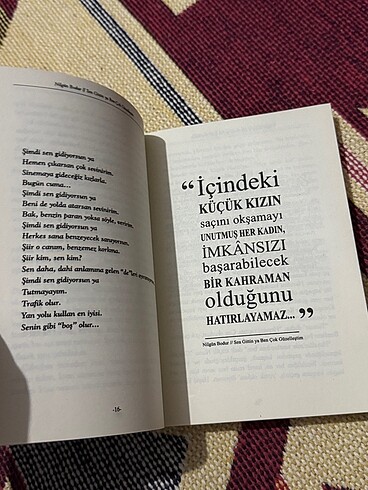 Nilgün Bodur // Sen Gittin ya Ben Çok Güzelleştim
Şimdi sen gidiyorsun ya
Hemen çıkarsan çok sevinirim.
Sinemaya gideceğiz kızlarla.
Bugün cuma...
Şimdi sen gidiyorsun ya
Beni de yolda atarsan sevinirim.
Bak, benzin paran yoksa söyle, veririm.
Şimdi sen gidiyorsun ya
Herkes sana benzeyecek sanıyorsun.
Şiir o canım, benzemez korkma.
Şiir kim, sen kim?
Sen daha, dahi anlamına gelen "de"leri ayıramıyorsun
Şimdi sen gidiyorsun ya
Tutmayayım.
Trafik olur.
Yan yolu kullan en iyisi.
Senin gibi "boş" olur...
-16-
“İçindeki
KÜÇÜK KIZIN
saçını okşamayı
UNUTMUŞ HER KADIN,
İMKÂNSIZI
başarabilecek
BİR KAHRAMAN
olduğunu
HATIRLAYAMAZ...”
Nilgün Bodur // Sen Gittin ya Ben Çok Güzelleştim